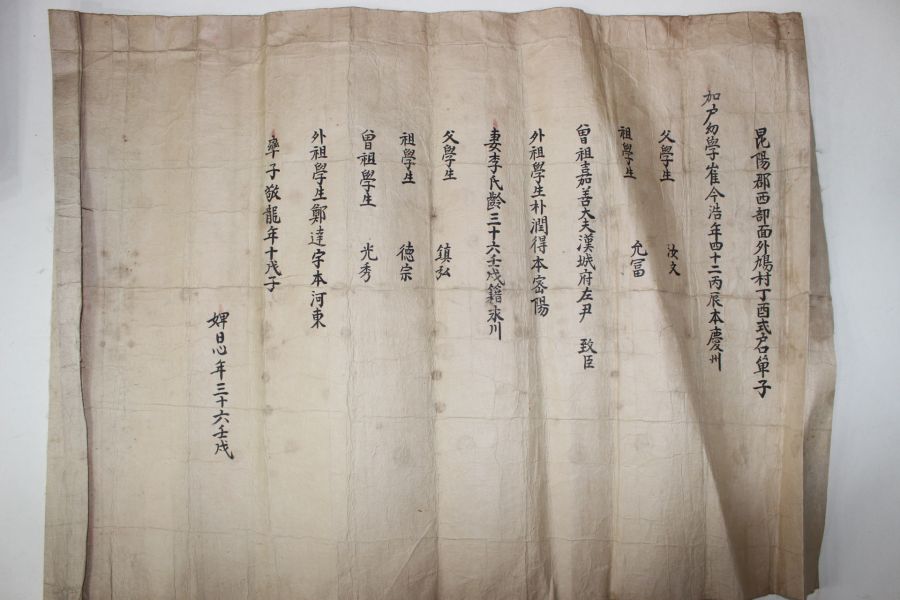 昆陽郡西部面外鳩村丁酉式戶單子
加户幼學崔今浩年四十二丙辰本慶州
父學生 汝文
祖學生 允冨
曾祖嘉善大夫漢城府左尹 致臣
外祖學生朴潤得本密陽
妻李氏齡三十六壬戌籍永川
父學生 鎮弘
祖學生 德宗
曾祖學生 光秀
外祖學生鄭達字本河東
率子敬龍年十戊子
婢日心年三十六壬戌